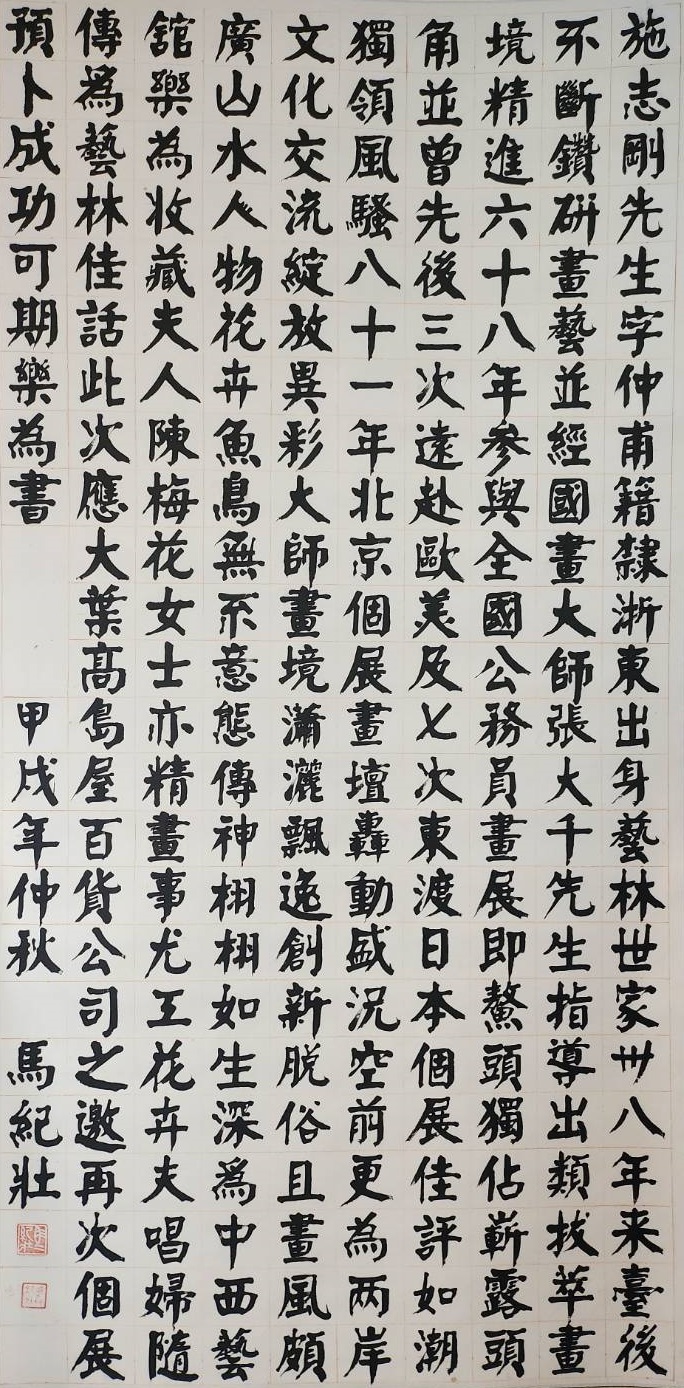 施志剛先生字仲甫籍隸浙東出身藝林世家卅八年来臺後
不斷鑽研畫藝並經國畫大師張大千先生指導出類拔萃畫
境精進六十八年參與全國公務員畫展即鰲頭獨佔嶄露頭
角並曾先後三次遠赴歐美及七次東渡日本個展佳評如潮
獨領風騷八十一年北京個展畫壇轟動盛況空前更為两岸
文化交流綻放異彩大師畫境瀟灑飄逸創新脫俗且畫風頗
廣山水人物花卉魚鳥無不意態傳神栩栩如生深爲中西藝
舘樂為收藏夫人陳梅花女士亦精畫事尤工花卉夫唱婦隨
傳爲藝林佳話此次應大葉高島屋百貨公司之邀再次個展
預卜成功可期樂為書 甲戌年仲秋 馬紀壯